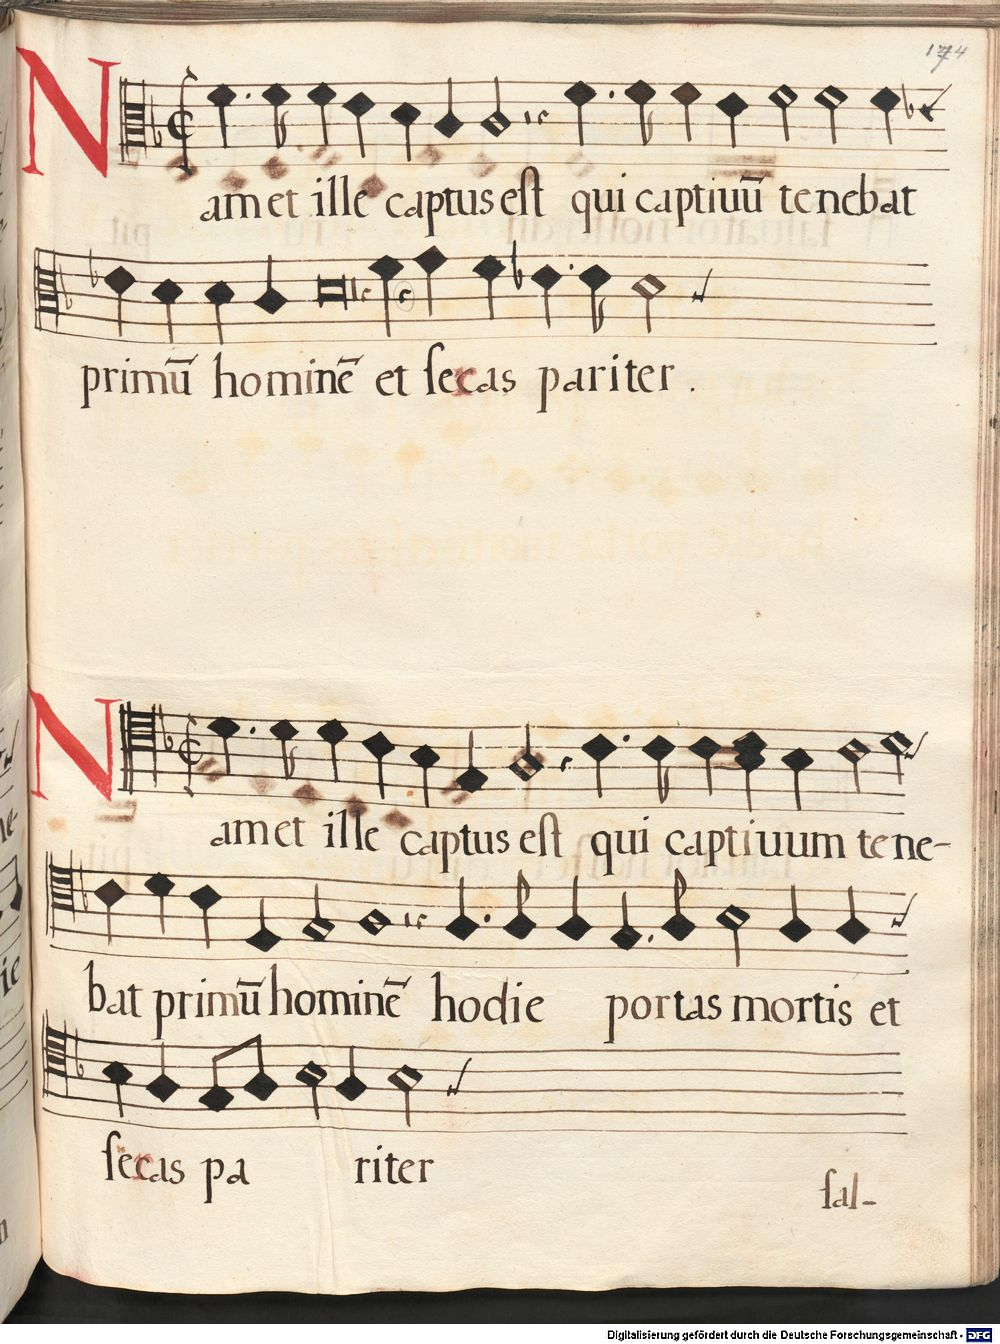 174
Namet ille captus est qui captiuū tenebat
primū hominē et seras pariter.
Namet ille captus est qui captiuum tene-
bat primū hominē hodie portas mortis et
seras pa riter
sal-
Digitalisierung gefördert durch die Deutsche Forschungsgemeinschaft - DFG